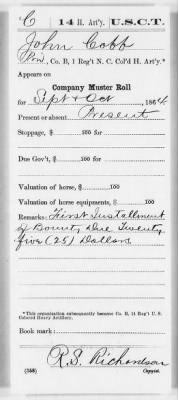 C 14 H. Art'y. U.S.C.T.
John Cobb
Pvt, Co. B, 1 Reg't N. C. Col'd H. Art'y.*
Appears on
Company Muster Roll
for Sept & Oct, 1864.
Present or absent Present
Stoppage, $ 100 for
Due Gov't, $ 100 for
Valuation of horse, $ 100
Valuation of horse equipments, $ 100
Remarks: First Installment
of Bounty due Twenty
five (25) Dollars
*This organization subsequently became Co. B, 14 Reg't U. S.
Colored Heavy Artillery.
Book mark:
R. S. Richardson
(358) Copyist.